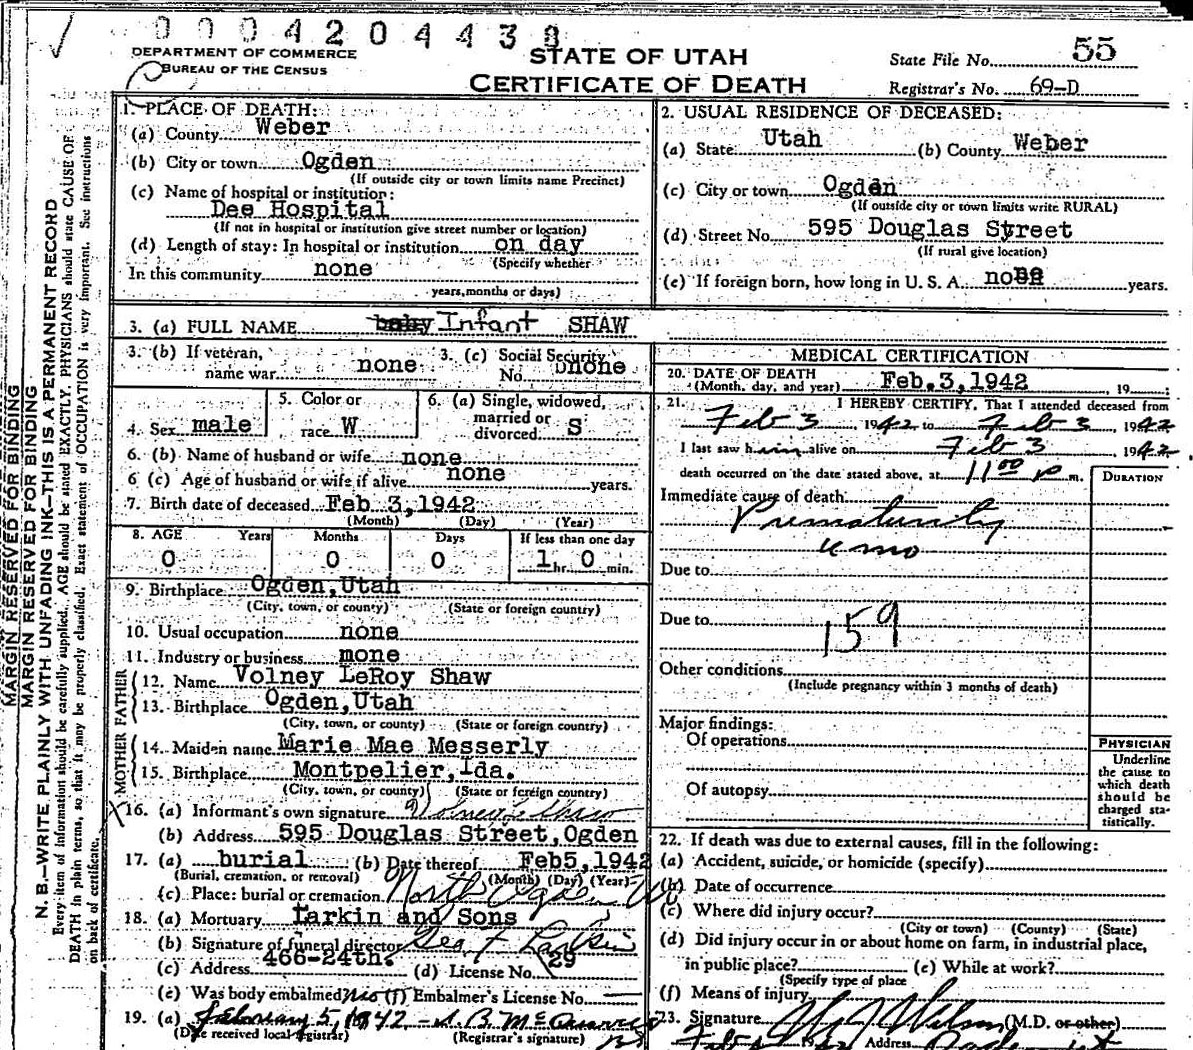 0 0 0 4 2 0 4 4 3 8
DEPARTMENT OF COMMERCE
BUREAU OF THE CENSUS
STATE OF UTAH
CERTIFICATE OF DEATH
State File No. 55
Registrar's No. 69-D
1. PLACE OF DEATH:
(a) County Weber
(b) City or town Ogden
(If outside city or town limits name Precinct)
(c) Name of hospital or institution:
Dee Hospital
(If not in hospital or institution give street number or location)
(d) Length of stay: In hospital or institution on day
(Specify whether
In this community none
years, months or days)
2. USUAL RESIDENCE OF DECEASED:
(a) State Utah (b) County Weber
(c) City or town Ogden
(If outside city or town limits write RURAL)
(d) Street No. 595 Douglas Street
(If rural give location)
(e) If foreign born, how long in U. S. A. none years.
3. (a) FULL NAME baby Infant SHAW
3. (b) If veteran, name war none
3. (c) Social Security No. none
4. Sex male
5. Color or race W
6. (a) Single, widowed, married or divorced S
6. (b) Name of husband or wife none
6 (c) Age of husband or wife, if alive none years.
7. Birth date of deceased Feb 3,1942
(Month) (Day) (Year)
8. AGE Years Months Days If less than one day
0 0 0 1 hr. 0 min.
9. Birthplace Ogden,Utah
(City, town, or county) (State or foreign country)
10. Usual occupation none
11. Industry or business mone
FATHER
12. Name Volney LeRoy Shaw
13. Birthplace Ogden,Utah
(City, town, or county) (State or foreign country)
MOTHER
14. Maiden name Marie Mae Messerly
15. Birthplace Montpelier,Ida.
(City, town, or county) (State or foreign country)
16. (a) Informant's own signature
(b) Address 595 Douglas Street,Ogden
17. (a) burial (b) Date thereof Feb5,1942
(Burial, cremation, or removal) (Month) (Day) (Year)
(c) Place: burial or cremation North Ogden
18. (a) Mortuary Larkin and Sons
(b) Signature of funeral director Geo F Larkin
(c) Address 466-24th. (d) License No. 29
(e) Was body embalmed? No (f) Embalmer's License No.
19. (a) February 5, 1942 -
(Date received local registrar) (Registrar's signature)
MEDICAL CERTIFICATION
20. DATE OF DEATH
(Month, day, and year) Feb.3,1942, 19
21. I HEREBY CERTIFY, That I attended deceased from
Feb 3, 1942 to Feb 3, 1942
I last saw him alive on Feb 3, 1942
death occurred on the date stated above, at 11 00 p m.
DURATION
Immediate cause of death
Prematurity
6 mo
Due to
Due to 159
Other conditions
(Include pregnancy within 3 months of death)
Major findings:
Of operations
Of autopsy
PHYSICIAN
Underline
the cause to
which death
should be
charged sta-
tistically.
22. If death was due to external causes, fill in the following:
(a) Accident, suicide, or homicide (specify)
(b) Date of occurrence
(c) Where did injury occur?
(City or town) (County) (State)
(d) Did injury occur in or about home on farm, in industrial place,
in public place? (e) While at work?
(Specify type of place
(f) Means of injury
23. Signature Wilson (M.D. or other)
Address
MARGIN RESERVED FOR BINDING
MARGIN RESERVED FOR BINDING
N. B.—WRITE PLAINLY WITH UNFADING INK—THIS IS A PERMANENT RECORD
Every item of information should be carefully supplied. AGE should be stated EXACTLY. PHYSICIANS should state CAUSE OF
DEATH in plain terms, so that it may be properly classified. Exact statement of OCCUPATION is very important. See instructions
on back of certificate.